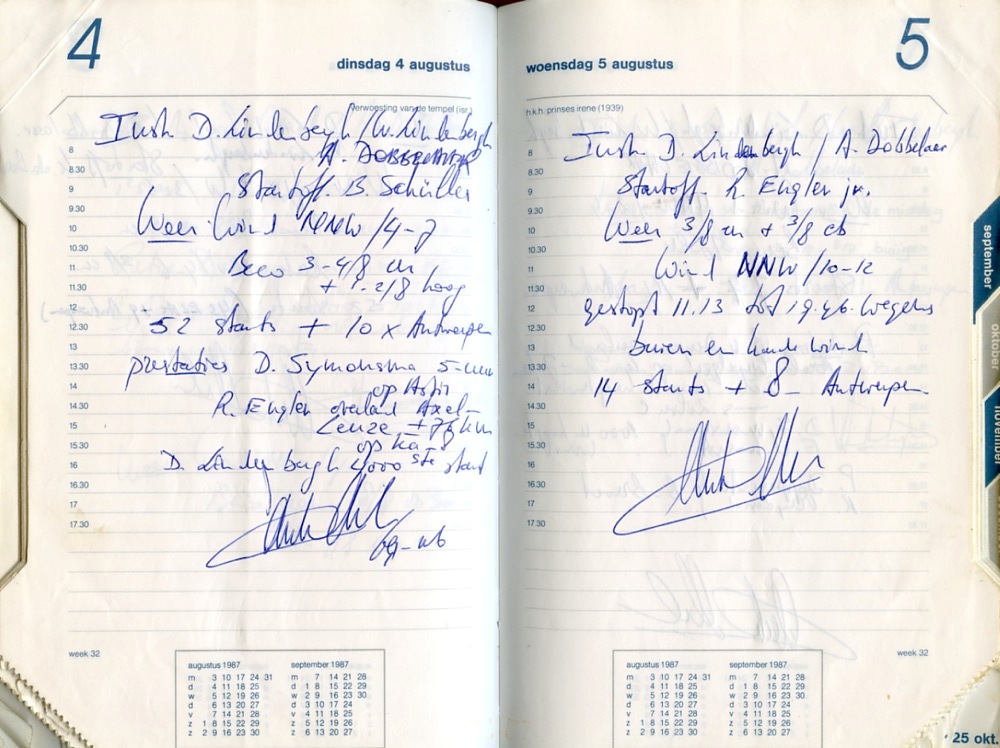 4
dinsdag 4 augustus
verwoesting van de tempel (isr.)
Instr. D. Lindenbergh / W. Lindenbergh
A. Dobbelaer
Startoff. B Schüller
Weer: Wind NNW / 4-7
Bew 3-4/8 cu
+ 1-2/8 hoog
52 starts + 10 x Antwerpen
prestaties D. Symonsma 5-uur
op Astir
R. Engler overland Axel-
Leuze ± 76 km
op Ka
D. Lindenbergh 4000 ste start
8
8.30
9
9.30
10
10.30
11
11.30
12
12.30
13
13.30
14
14.30
15
15.30
16
16.30
17
17.30
week 32
augustus 1987
m 3 10 17 24 31
d 4 11 18 25
w 5 12 19 26
d 6 13 20 27
v 7 14 21 28
z 1 8 15 22 29
z 2 9 16 23 30
september 1987
m 7 14 21 28
d 1 8 15 22 29
w 2 9 16 23 30
d 3 10 17 24
v 4 11 18 25
z 5 12 19 26
z 6 13 20 27
5
woensdag 5 augustus
h.k.h. prinses irene (1939)
Instr. D. Lindenbergh / A. Dobbelaer
Startoff. R. Engler jr.
Weer 3/8 cu + 3/8 cb
Wind NNW / 10-12
gestopt 11.13 tot 19.46 wegens
buien en harde wind
14 starts + 8 Antwerpen
8
8.30
9
9.30
10
10.30
11
11.30
12
12.30
13
13.30
14
14.30
15
15.30
16
16.30
17
17.30
week 32
augustus 1987
m 3 10 17 24 31
d 4 11 18 25
w 5 12 19 26
d 6 13 20 27
v 7 14 21 28
z 1 8 15 22 29
z 2 9 16 23 30
september 1987
m 7 14 21 28
d 1 8 15 22 29
w 2 9 16 23 30
d 3 10 17 24
v 4 11 18 25
z 5 12 19 26
z 6 13 20 27
september
oktober
november
25 okt.